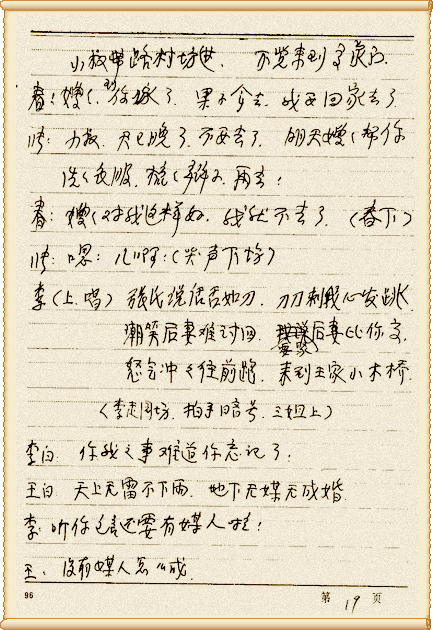 小叔带路村坊世，不觉来到了家门
春：嫂〈，你煤了，果不会去，我要回家去了
小叔，天已晚了，不要去了，明天嫂〈帮你
洗〈衣服，梳〈辫子，再去：
春：嫂〈对我这样好，我就不去了，（春下）
嗯：儿啊：（哭声下场）
李（上、唱）张氏说话舌如刀，刀刀刺我心发跳
潮笑后妻难讨回，后妻比你高
怒气冲〈往前跑，来到王家小木桥
（李走园坊，拍手旧暗号，三姐上）
李白：你我之事难道你忘记了：
王白：天上无雷不下雨，地下无媒无成婚
李：听你之言还要有媒人啦：
王：没有媒人怎么成
96 第 19 页